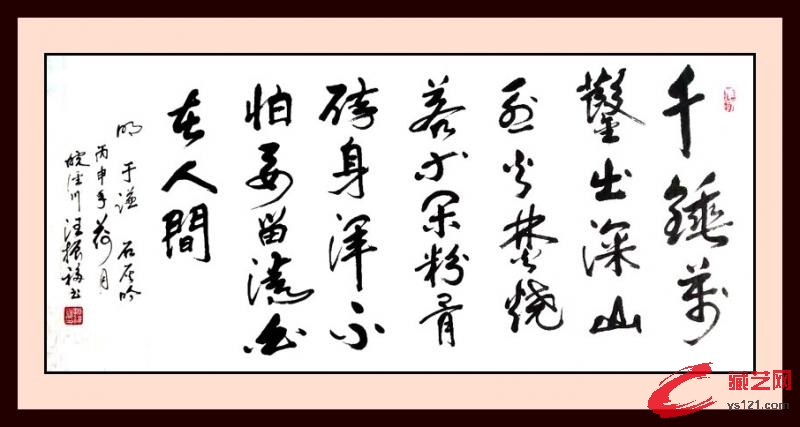 千錘萬
鑿出深山
烈火焚燒
若等閑粉骨
碎身渾不
怕要留清白
在人間
明 于谦 石灰吟
丙申年荷月
皖涇川汪振福书
藏艺网
ys121.com